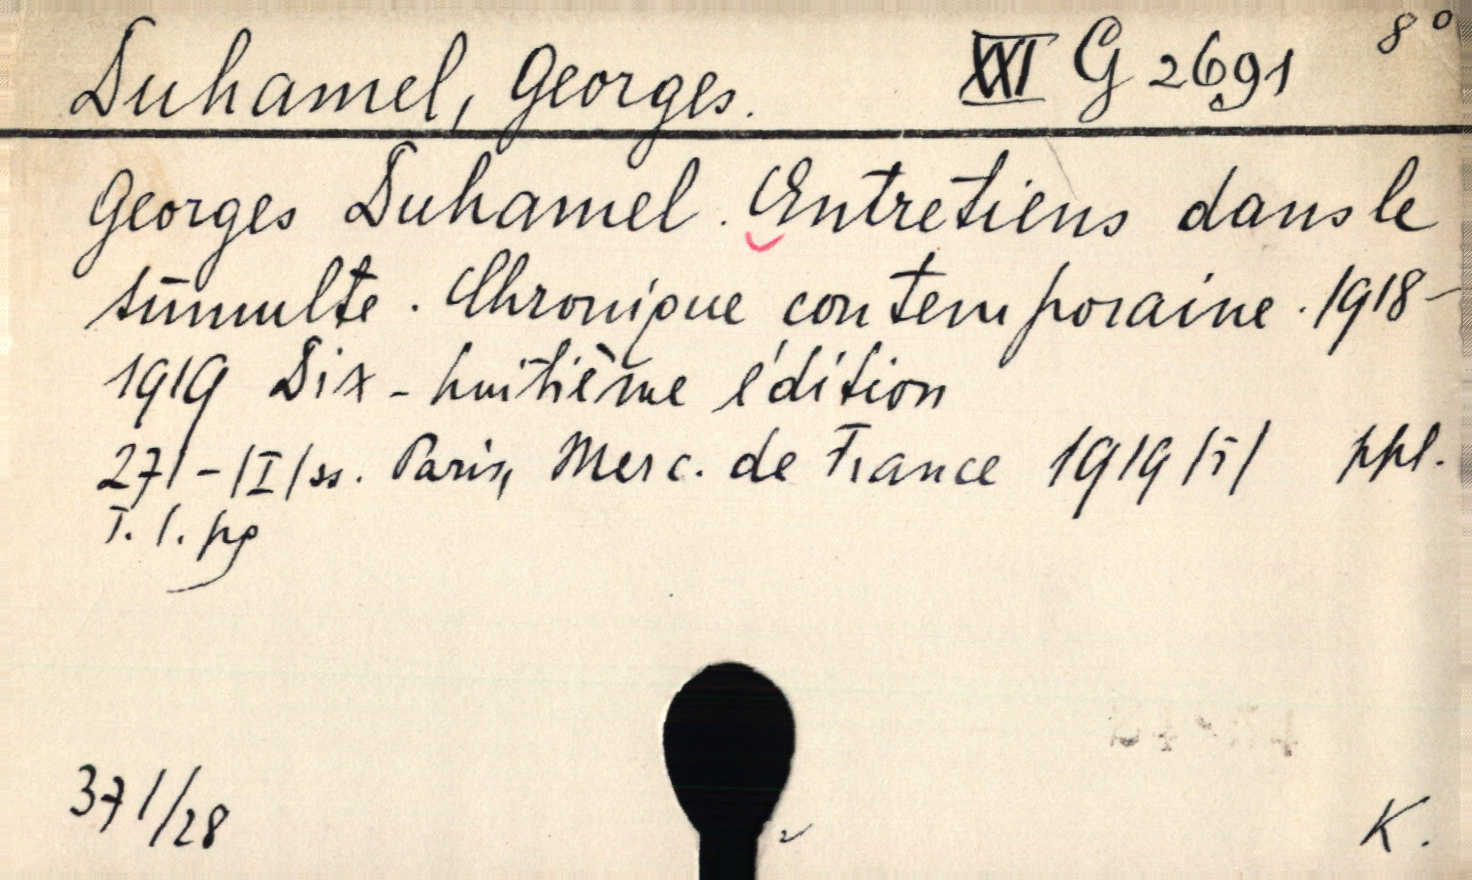 Duhamel, Georges. XXI G 2691 8°
Georges Duhamel. Entretiens dans le
tumulte. Chronique contemporaine. 1918-
1919 Dix-huitième édition
271-|I|ss. Paris, Merc. de France 1919 |i| ppl.
T. l. pg
371/28
K.